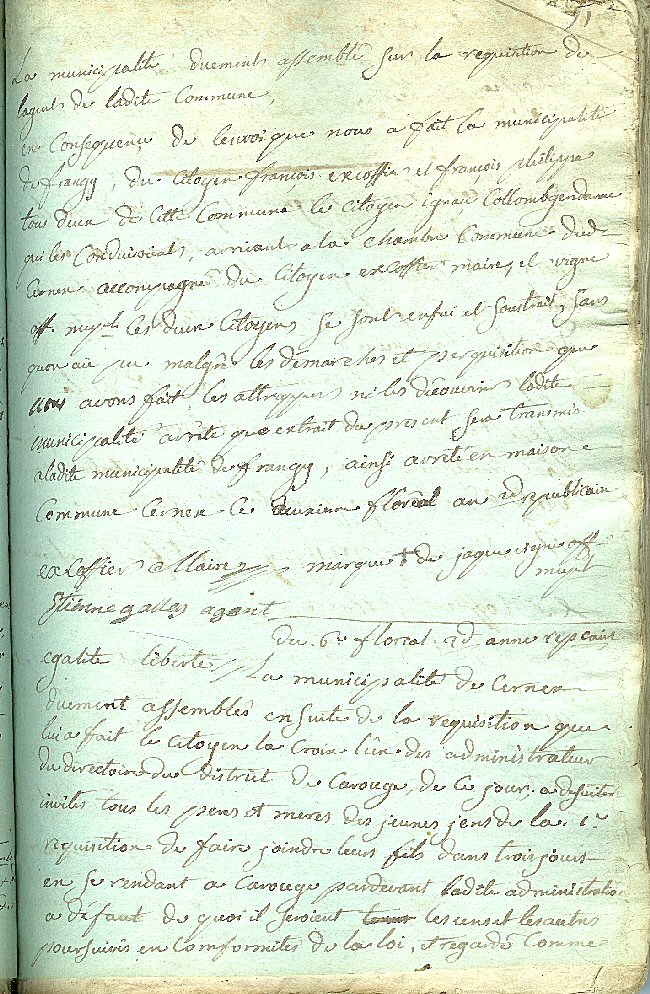 La municipalité duement assemblé sur la requisition de
lagent de ladite Commune,
en consequence de lenvoi que nous a fait la municipalité
de frangy, du citoyen francois excoffier et francois philippe
tous deux de cette Commune le citoyen ignace Collomb gendarme
qui les Conduisoient, arrivant a la chambre Commune dud
Cernex accompagné du Citoyen excoffier maire, et vigne
off. mupl les deux Citoyens se sont enfui et soustrait, sans
quon aie pu malgré les démarches et perquisition que
nous avons fait les attrapper ni les découvrir ladite
municipalité arrête que extrait du present sera transmis
a ladite municipalité de frangy, ainsi arrêté en maison
Commune Cernex Ce floréal an 2d republicain
excoffier Maire marque † de jaque vigne off
mupl
Etienne gallay agent
du 6e floréal 2d anne repcaint
egalité liberté La municipalité de Cernex
duement assemblés ensuite de la requisition que
lui a fait le citoyen la Croix lûn des administrateur
du directoire du district de Carouge, de ce jour, a de suite
invités tous les peres et meres des jeunes jens de la 1e
requisition de faire joindre leurs fils dans trois jours
en se rendant a Carouge pardevant ladite administration
a défaut de quoi il seroient les uns et les autres
poursuivis en Comformités de la loi, et regardé Comme